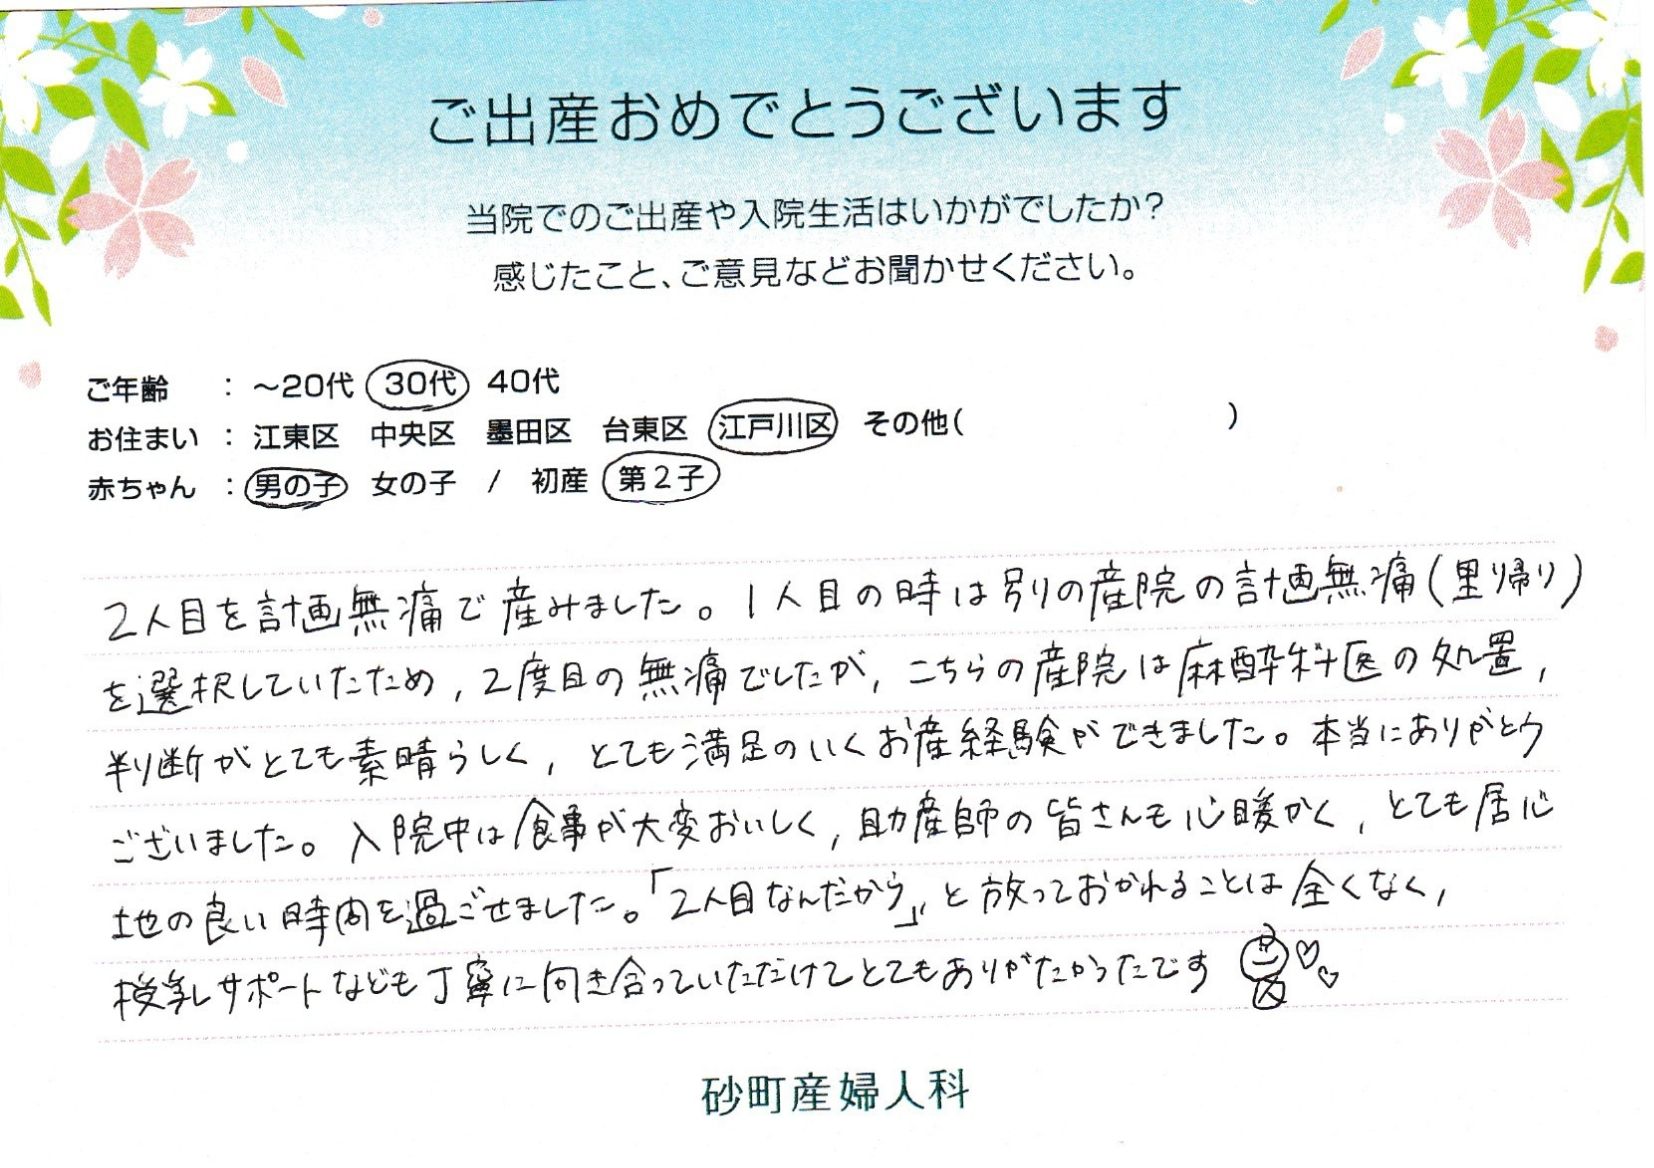 ご出産おめでとうございます
当院でのご出産や入院生活はいかがでしたか?
感じたこと、ご意見などお聞かせください。
ご年齢 : ～20代 30代 40代
お住まい : 江東区 中央区 墨田区 台東区 江戸川区 その他( )
赤ちゃん : 男の子 女の子 / 初産 第2子
2人目を計画無痛で産みました。1人目の時は別の産院の計画無痛(里帰り)
を選択していたため,2度目の無痛でしたが,こちらの産院は麻酔科医の処置,
判断がとても素晴らしく,とても満足のいくお産経験ができました。本当にありがとう
ございました。入院中は食事が大変おいしく,助産師の皆さんも心暖かく,とても居心
地の良い時間を過ごせました。「2人目なんだから」と放っておかれることは全くなく,
授乳サポートなども丁寧に向き合っていただけてとてもありがたかったです
砂町産婦人科